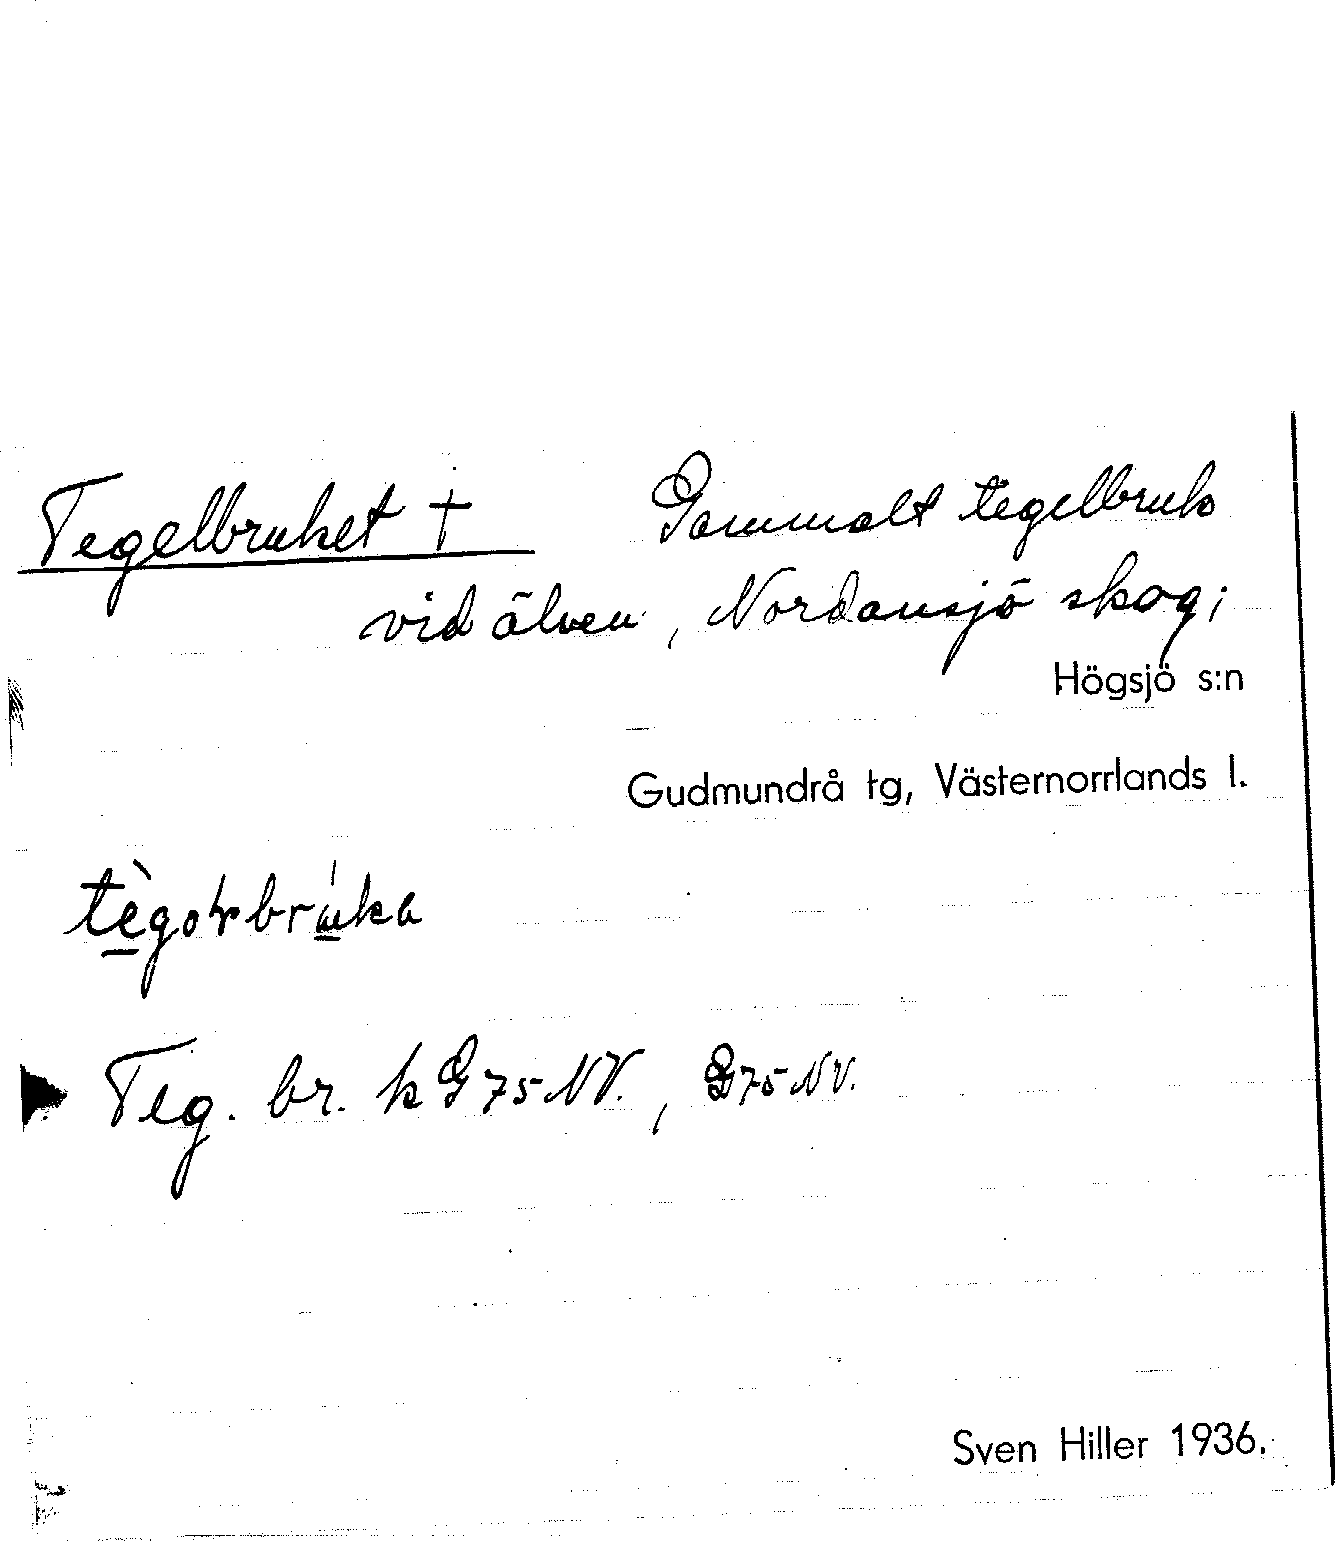 Tegelbruket † Gammalt tegelbruk
vid älven, Nordansjö skog;
Högsjö s:n
Gudmundrå tg, Västernorrlands l.
Teg. br. k G 75 NV., G 75 NV.
Sven Hiller 1936.